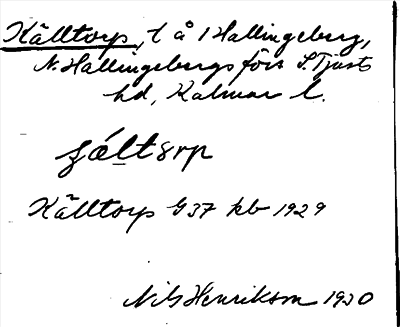 Källtorp, t å 1 Hallingeberg,
N. Hallingebergs förs S. Tjusts
hd, Kalmar l.
Källtorp G37 kb 1929
Nils Henrikson 1930